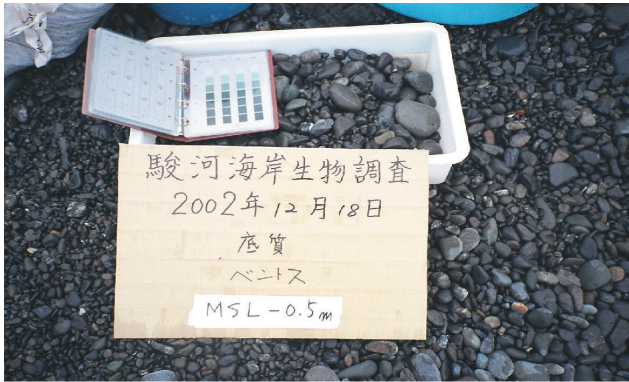 駿河海岸生物調査
2002年12月18日
底質
ベントス
MSL-0.5m